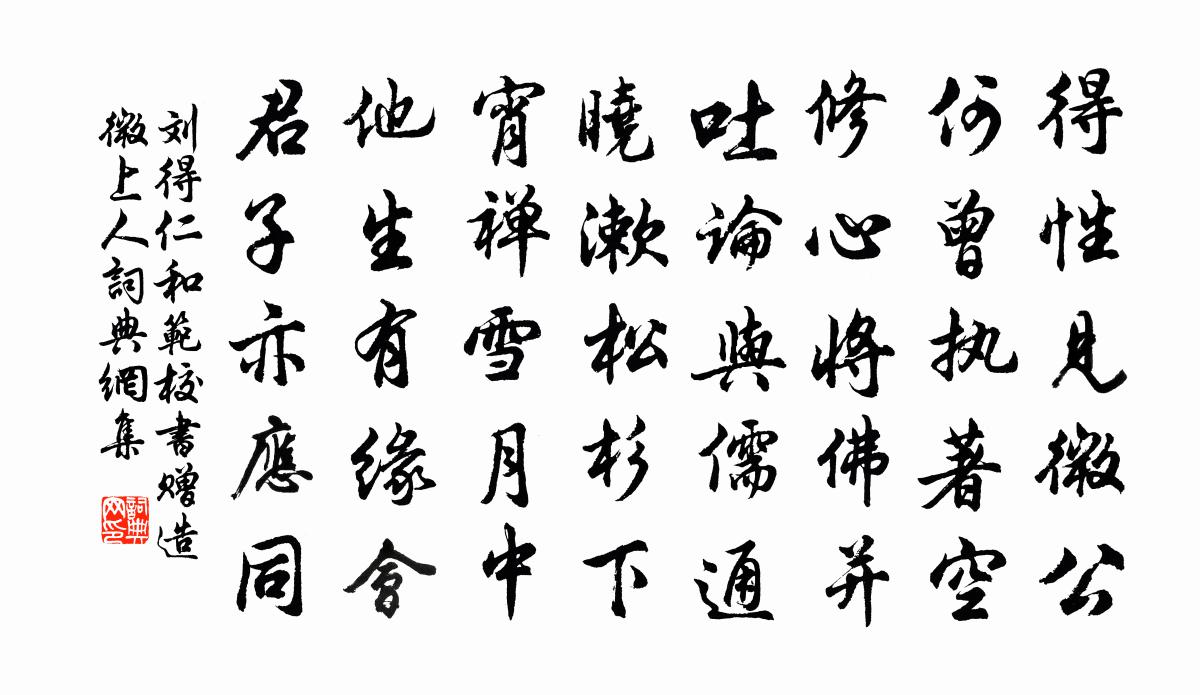 得性見微公
何曾执著空
修心將佛并
吐論與儒通
曉漱松杉下
宵禅雪月中
他生有緣會
君子亦應同
刘得仁和範校書赠造
微上人詞典網集
詞典网印